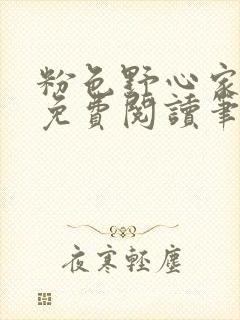 粉色野心家
免費閱讀筆
夜寒輕塵